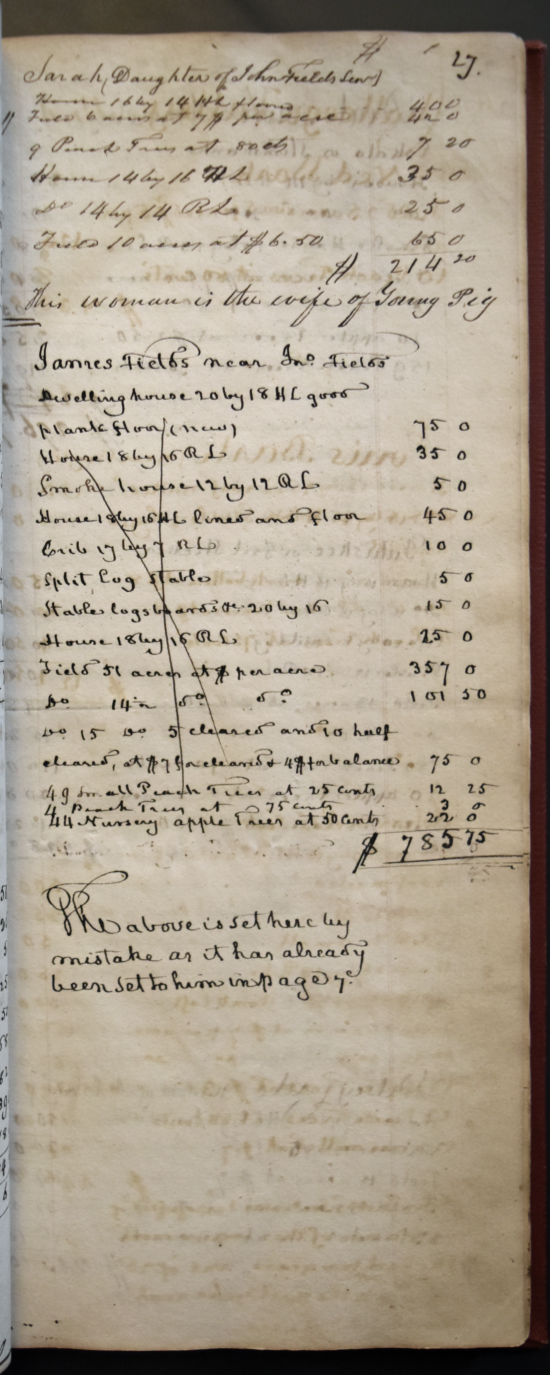 $ 27.
Sarah (Daughter of John Fields Senr)
House 16 by 14 HL floor 40 0
" Field 6 acres at 7$ per acre 42 0
9 Peach Trees at 80 cts 7 20
House 14 by 16 HL 35 0
Do 14 by 14 RL. 25 0
Field 10 acres at $6.50 65 0
$ 214 20
This woman is the wife of Young Pig
James Fields near Jno. Fields
Dwelling house 20 by 18 HL good
plank floor (new) 75 0
House 18 by 16 RL 35 0
Smoke house 12 by 12 RL 5 0
House 18 by 16 HL lined and floor 45 0
Crib 17 by 7 RL 10 0
Split Log Stable 5 0
Stable logs boards &c. 20 by 16 15 0
House 18 by 16 RL 25 0
Field 51 acres at $ per acre 357 0
Do 14½ do do 101 50
Do 15 Do 5 cleared and 10 half
cleared, at $7 for cleared & 4$ for balance 75 0
49 Small Peach Trees at 25 cents 12 25
4 Peach Trees at 75 cents 3 0
44 Nursery apple Trees at 50 cents 22 0
$ 785 75
The above is set here by
mistake as it has already
been set to him in page 7.